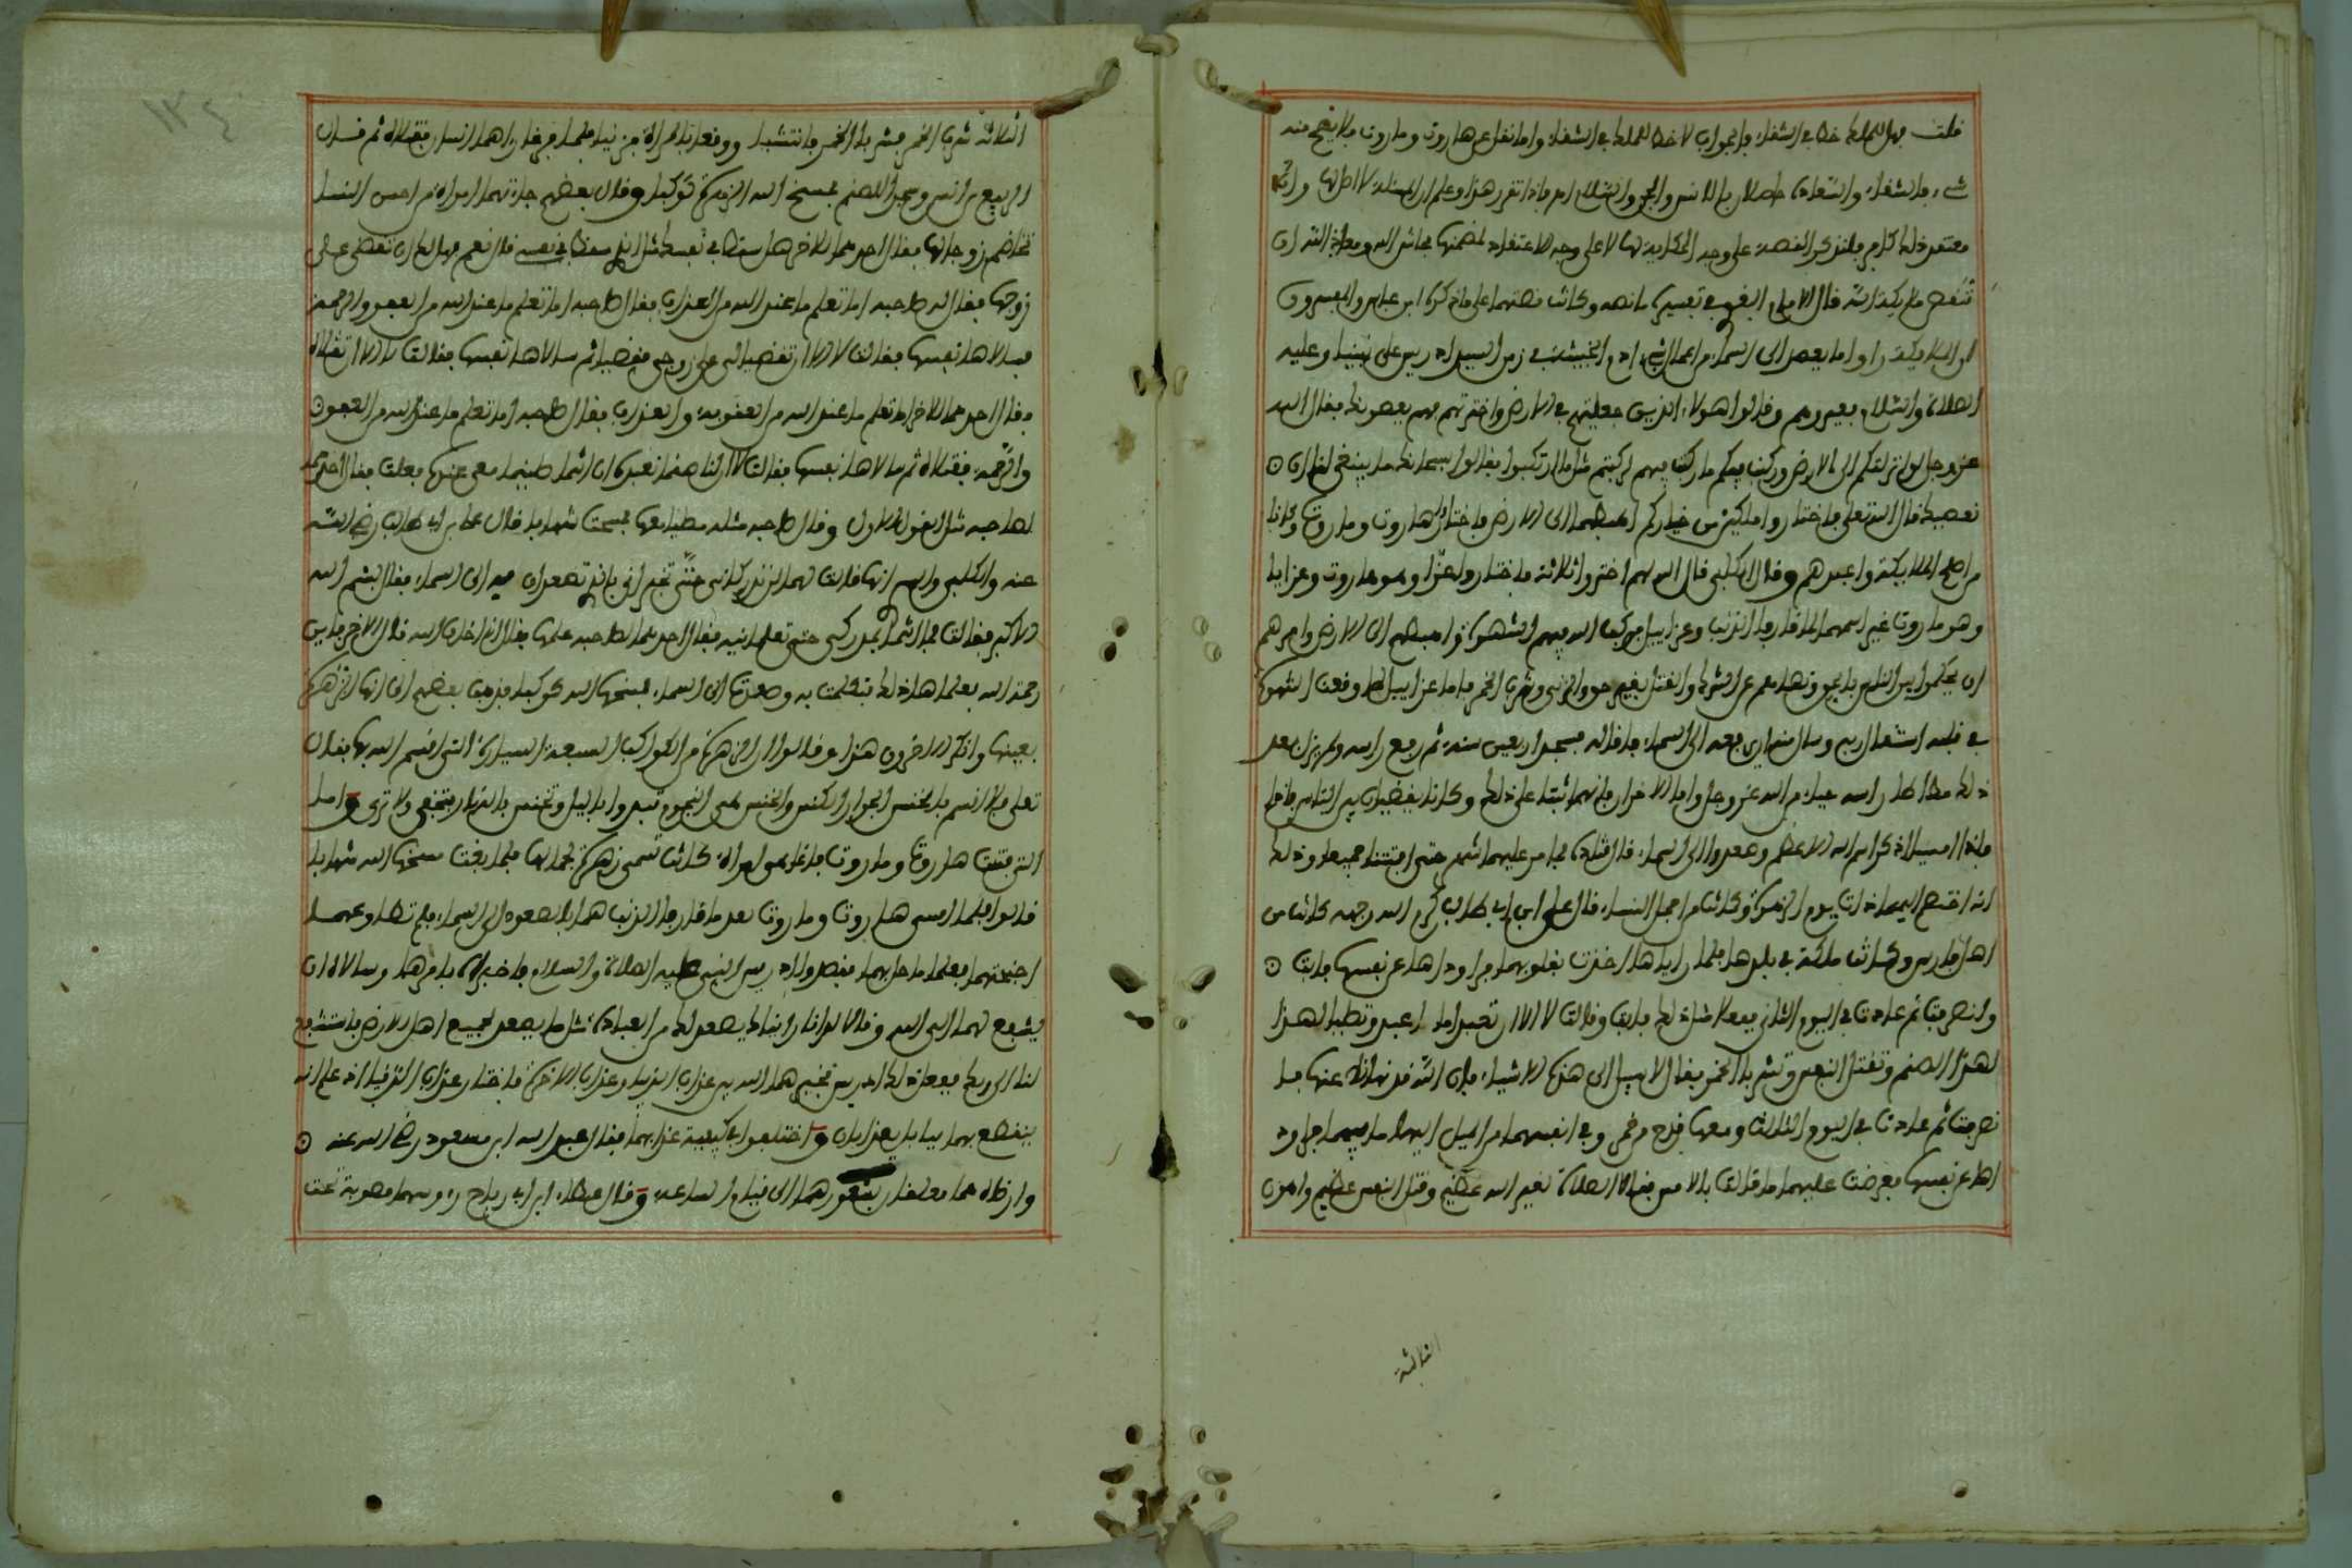 قلت فهل للملك حظ في الشقاء فالجواب لا حظ للملك في الشقاء واما نقل عن هاروت وماروت فلا يصح منه
شيء فالشقاء والسعادة خاصان بالانس والجن والسلام فاذا تقرر هذا وعلم ان المسئلة لا اصل لها
معتمد ذلك كلام فلنذكر القصة على وجه الحكاية لها لا على وجه الاعتقاد لمضمنها حاش الله ومعاذ الله ان
تنقص ملائكة الله قال الامام البغوي في تفسيره ما نصه وكانت قصتهما على ما ذكره ابن عباس والمفسرون
ان الملائكة راوا ما يصعد الى السماء من اعمال بني ادم الخبيثة في زمن السيد ادريس على نبينا وعليه
الصلاة والسلام فعيروهم وقالوا هؤلاء الذين جعلتهم في الارض واخترتهم فهم يعصونك فقال الله
عز وجل لو انزلتكم الى الارض وركبت فيكم ما ركبت فيهم لركبتم مثل ما ارتكبوا فقالوا سبحانك ما ينبغي لنا ان
نعصيك قال الله تعالى فاختاروا ملكين من خياركم اهبطهما الى الارض فاختاروا هاروت وماروت وكانا
من اصلح الملائكة واعبدهم وقال الكلبي قال الله لهم اختروا ثلاثة فاختاروا عزا وهو هاروت وعزايا
وهو ماروت غير اسمهما لما قارفا الذنب وعزاييل فركب الله فيهم الشهوة واهبطهم الى الارض وامرهم
ان يحكموا بين الناس بالحق ونهاهم عن الشرك والقتل بغير حق والزنى وشرب الخمر فاما عزاييل لما وقعت الشهوة
في قلبه استقال ربه وسال منه ان يرفعه الى السماء فاقاله فسجد اربعين سنة ثم رفع راسه ولم يزل بعد
ذلك مطاطا راسه حياء من الله عز وجل واما الاخران فانهما ثبتا على ذلك وكانا يقضيان بين الناس يومهما
فاذا امسيا ذكرا اسم الله الاعظم وصعدوا الى السماء قال قتادة فما مر عليهما شهر حتى افتتنا جميعا وذلك
انه اختصم اليهما ذات يوم الزهرة وكانت من اجمل النساء قال علي ابن ابي طالب كرم الله وجهه كانت من
اهل فارس وكانت ملكة في بلدها فلما راياها اخذت بقلوبهما فراوداها عن نفسها فابت
وانصرفت ثم عادت في اليوم الثاني ففعلا مثل ذلك فابت وقالت لا الا ان تعبدا ما اعبد وتصليا لهذا
لهذا الصنم وتقتلا النفس وتشربا الخمر فقالا لا سبيل الى هذه الاشياء فان الله قد نهانا عنها فا
نصرفت ثم عادت في اليوم الثالث ومعها قدح من خمر وفي انفسهما من الميل اليها ما فيهما فراود
اها عن نفسها فعرضت عليهما ما قالت بالامس فقالا الصلاة لغير الله عظيم وقتل النفس عظيم واهون
الثالثة
الثلاثة شرب الخمر فشربا الخمر فانتشيا ووقعا بالمراة فزنيا فلما فرغا راهما انسان فقتلاه ثم قال
الربيع بن انس وسجدا للصنم فمسخ الله الزهرة كوكبا وقال بعضهم جاءتهما امراة من احسن النساء
تخاصم زوجها فقال احدهما للاخر هل سقط في نفسك مثل الذي سقط في نفسي قال نعم فهل لك ان تقضي على
زوجها فقال له صاحبه اما تعلم ما عند الله من العذاب فقال صاحبه اما تعلم ما عند الله من العفو والرحمة
فسالاها نفسها فقالت لا الا ان تقضيا لي على زوجي فقضيا ثم سالاها نفسها فقالت لا الا ان تقتلاه
فقال احدهما للاخر اما تعلم ما عند الله من العقوبة والعذاب فقال صاحبه اما تعلم ما عند الله من العفو
والرحمة فقتلاه ثم سالاها نفسها فقالت لا ان لنا صنما نعبده ان انتما صليتما معي عنده فعلت فقال احدهما
لصاحبه مثل القول الاول وقال صاحبه مثله فصليا معها فمسخت شهابا قال علي بن ابي طالب رضي الله
عنه والكلبي وانها قالت لهما لن تدركاني حتى تخبراني بالذي تصعدان به الى السماء فقالا بسم الله
الاكبر فقالت فما انتما بمدركي حتى تعلمانيه فقال احدهما لصاحبه علمها فقال اني اخاف الله قال الاخر فاين
رحمة الله فعلماها ذلك فتكلمت به وصعدت الى السماء فمسخها الله كوكبا فذهب بعضهم الى انها الزهرة
بعينها وانكر الاخرون هذا وقالوا ان الزهرة من الكواكب السبعة السيارة التي اقسم الله بها فقال
تعالى فلا اقسم بالخنس الجوار الكنس والخنس هي النجوم تبدوا بالليل وتخنس بالنهار فتختفي ولا ترى واما
التي فتنت هاروت وماروت فانما هي امراة كانت تسمى زهرة لجمالها فلما بغت مسخها الله شهابا
قالوا فلما امسى هاروت وماروت بعد ما قارفا الذنب هما بالصعود الى السماء فلم تطاوعهما
اجنحتهما فعلما ما حل بهما فقصدا ادريس النبي عليه الصلاة والسلام فاخبراه بامرهما وسالاه ان
يشفع لهما الى الله وقالا له انا راينا يصعد لك من العبادة مثل ما يصعد لجميع اهل الارض فاستشفع
لنا الى ربك ففعل ذلك ادريس فخيرهما الله بين عذاب الدنيا وعذاب الاخرة فاختارا عذاب الدنيا اذ علما انه
ينقطع بهما بابل يعذبان واختلفوا في كيفية عذابهما فقال عبد الله ابن مسعود رضي الله عنه
هما معلقان بشعورهما الى قيام الساعة وقال عطاء ابن ابي رباح رءوسهما مصوبة تحت
١٣٤